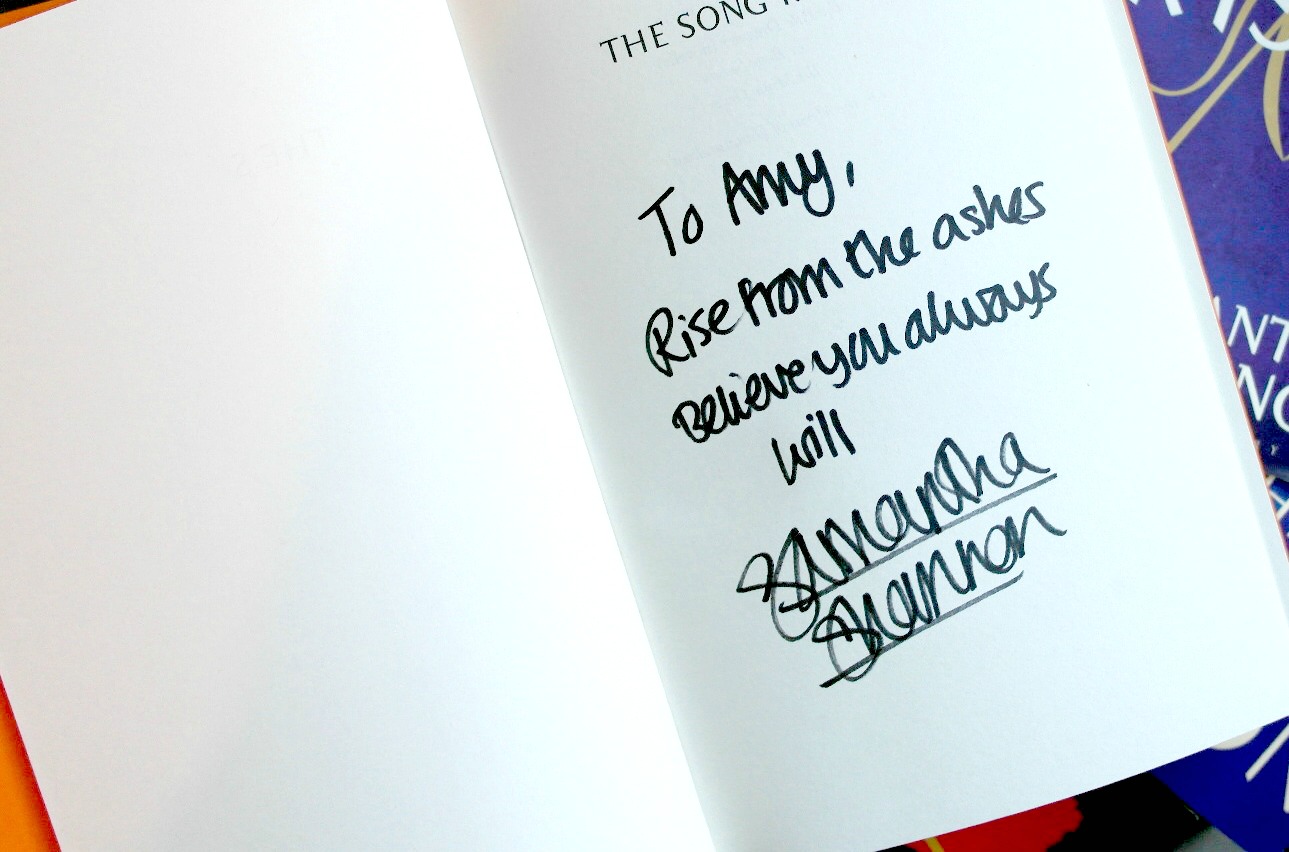 THE SONG
To Amy,
Rise from the ashes
Believe you always
will
Samantha
Shannon